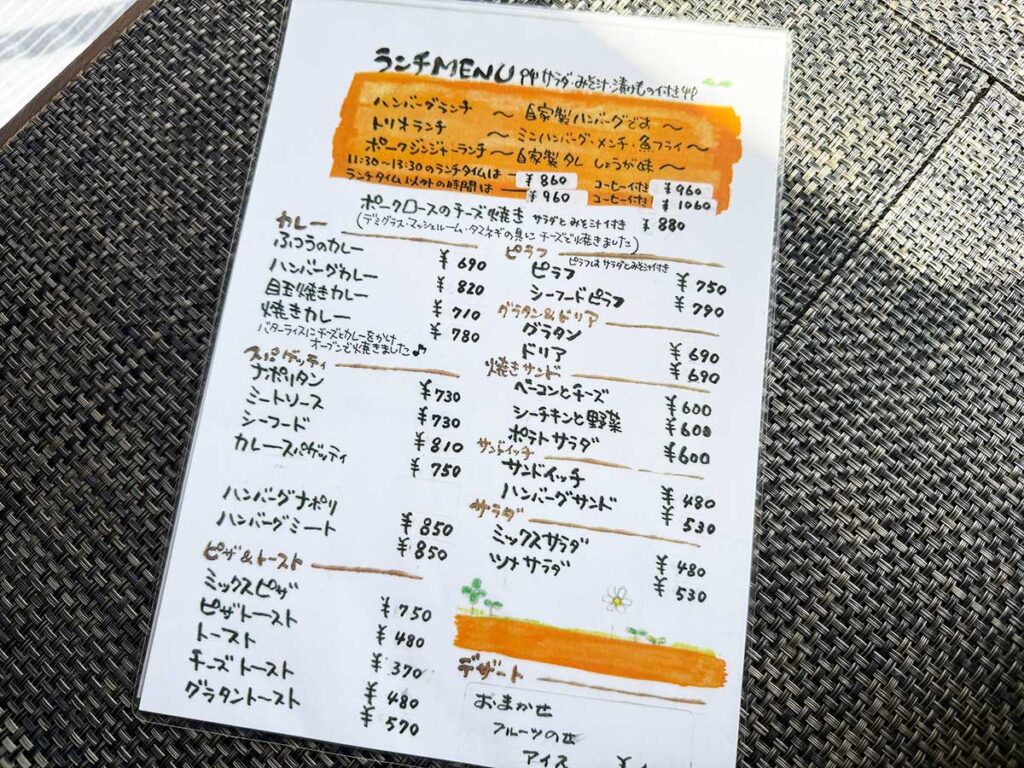 ランチMENU サラダ・みそ汁・漬けもの付き
ハンバーグランチ 〜 自家製ハンバーグです 〜
トリオランチ 〜 ミニハンバーグ・メンチ・魚フライ 〜
ポークジンジャーランチ 〜 自家製タレ しょうが味 〜
11:30〜13:30のランチタイムは ¥860 コーヒー付き ¥960
ランチタイム以外の時間は ¥960 コーヒー付き ¥1060
ポークロースのチーズ焼き サラダとみそ汁付き ¥880
(デミグラス・マッシュルーム・タマネギの具に チーズで焼きました)
カレー
ふつうのカレー ¥690
ハンバーグカレー ¥820
目玉焼きカレー ¥710
焼きカレー ¥780
バターライスにチーズとカレーをかけ
オーブンで焼きました♪
スパゲッティ
ナポリタン ¥730
ミートソース ¥730
シーフード ¥810
カレースパゲッティ ¥750
ハンバーグナポリ ¥850
ハンバーグミート ¥850
ピザ&トースト
ミックスピザ ¥750
ピザトースト ¥480
トースト ¥370
チーズトースト ¥480
グラタントースト ¥570
ピラフ
ピラフはサラダとみそ汁付
ピラフ ¥750
シーフードピラフ ¥790
グラタン&ドリア
グラタン ¥690
ドリア ¥690
焼きサンド
ベーコンとチーズ ¥600
シーチキンと野菜 ¥600
ポテトサラダ ¥600
サンドイッチ
サンドイッチ ¥480
ハンバーグサンド ¥530
サラダ
ミックスサラダ ¥480
ツナサラダ ¥530
デザート
おまかせ
フルーツの
アイス ¥